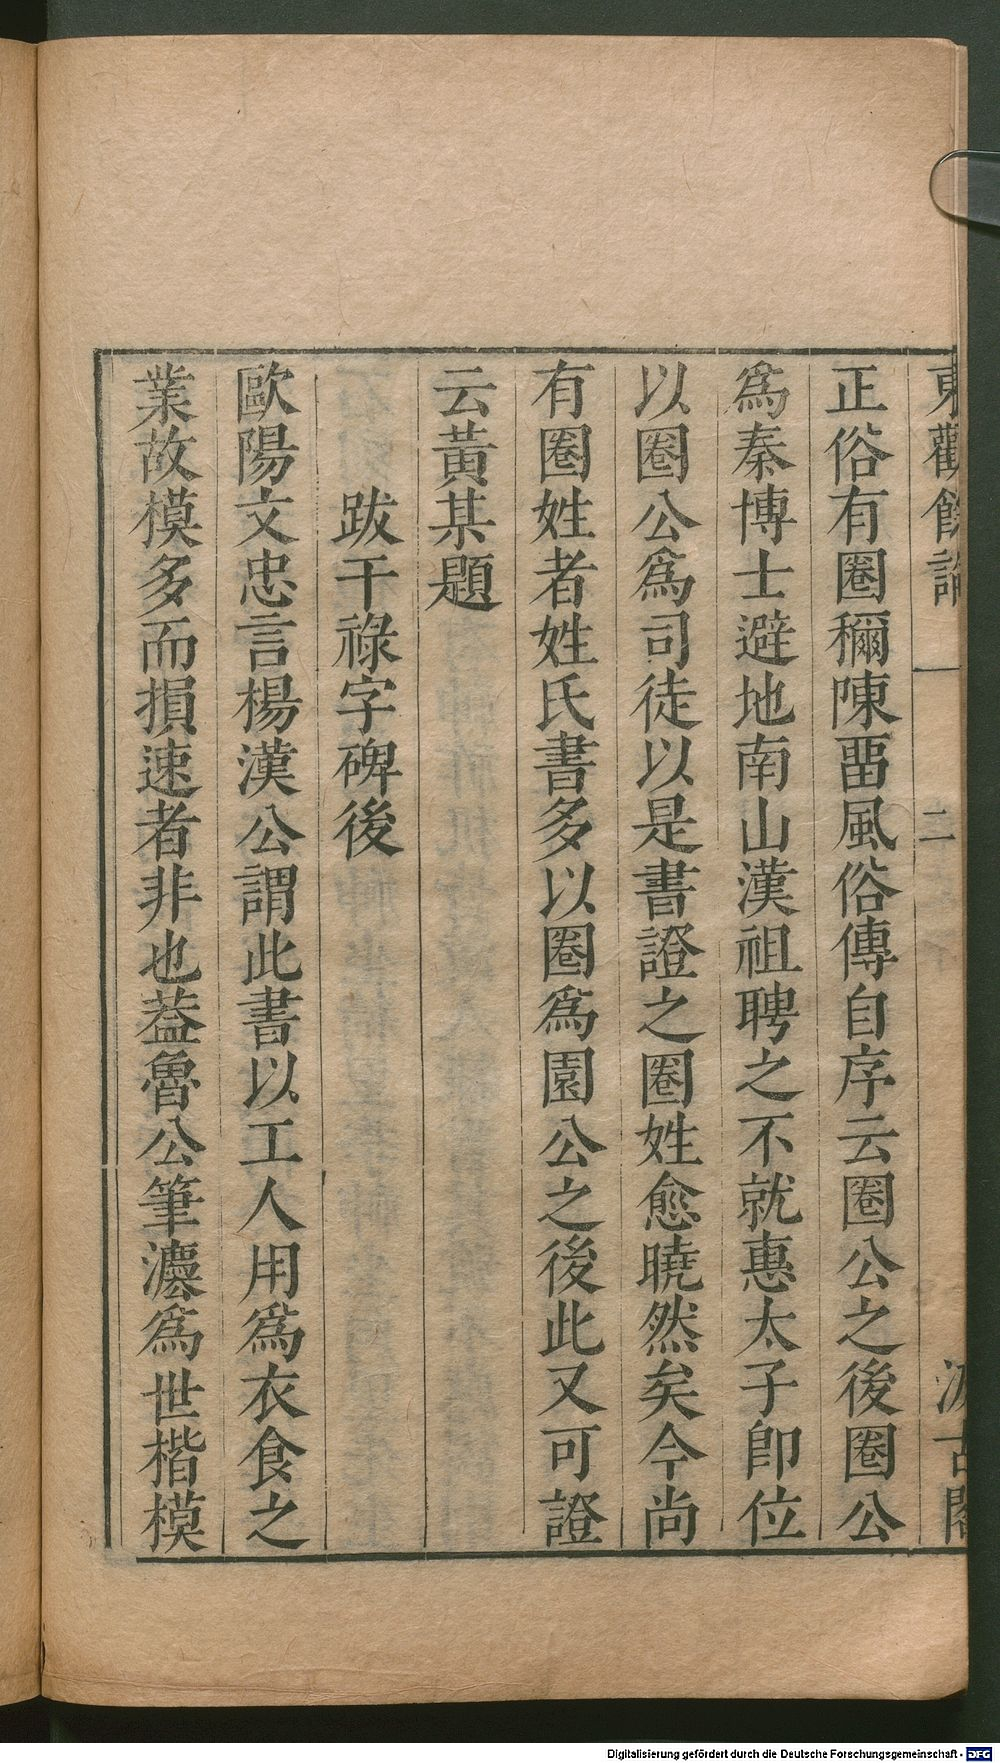 東觀餘論 一 二 汲古閣
正俗有圈稱陳畱風俗傳自序云圈公之後圈公
爲秦博士避地南山漢祖聘之不就惠太子卽位
以圈公爲司徒以是書證之圈姓愈曉然矣今尚
有圈姓者姓氏書多以圈爲園公之後此又可證
云黃某題
跋干祿字碑後
歐陽文忠言楊漢公謂此書以工人用爲衣食之
業故模多而損速者非也葢魯公筆灋爲世楷模
Digitalisierung gefördert durch die Deutsche Forschungsgemeinschaft - DFG